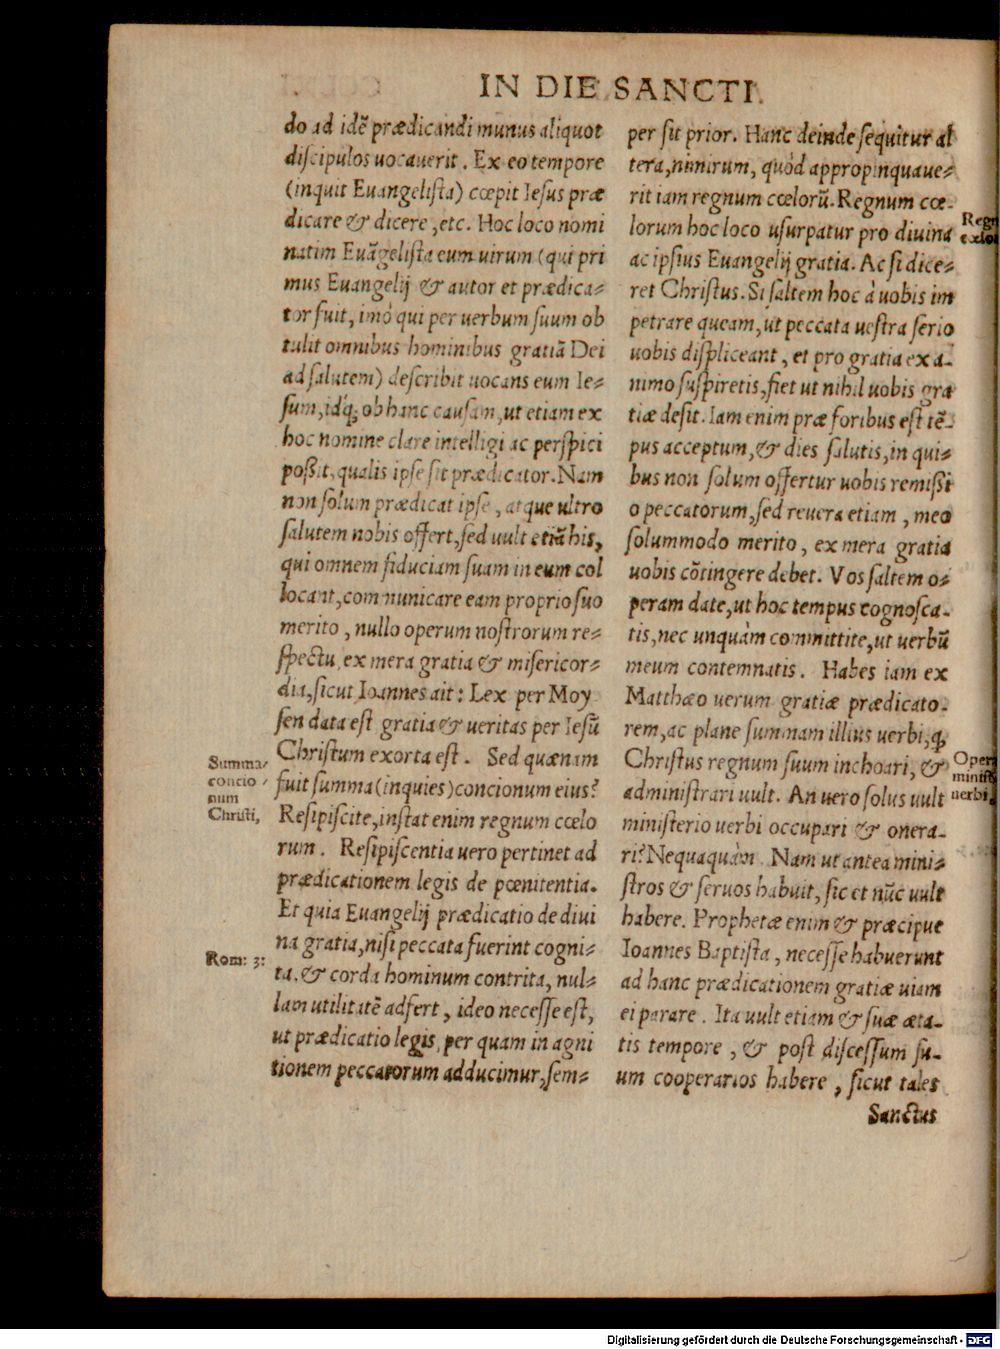 IN DIE SANCTI.
do ad idẽ prædicandi munus aliquot
discipulos uocauerit. Ex eo tempore
(inquit Euangelista) cœpit Iesus præ
dicare & dicere, etc. Hoc loco nomi
natim Euãgelista eum uirum (qui pri
mus Euangelij & autor et prædica-
tor fuit, imò qui per uerbum suum ob
tulit omnibus hominibus gratiã Dei
ad salutem) describit uocans eum Ie-
sum, idq; ob hanc causam, ut etiam ex
hoc nomine clare intelligi ac perspici
poßit, qualis ipse sit prædicator. Nam
non solum prædicat ipse, atque ultro
salutem nobis offert, sed uult etiã his,
qui omnem fiduciam suam in eum col
locant, communicare eam proprio suo
merito, nullo operum nostrorum re-
spectu, ex mera gratia & misericor-
dia, sicut Ioannes ait: Lex per Moy
sen data est gratia & ueritas per Iesũ
Christum exorta est. Sed quænam
fuit summa (inquies) concionum eius?
Resipiscite, instat enim regnum cœlo
rum. Resipiscentia uero pertinet ad
prædicationem legis de pœnitentia.
Et quia Euangelij prædicatio de diui
na gratia, nisi peccata fuerint cogni-
ta, & corda hominum contrita, nul-
lam utilitatẽ adfert, ideo necesse est,
ut prædicatio legis, per quam in agni
tionem peccatorum adducimur, sem-
Summa
concio
num
Christi,
Rom: 3:
per sit prior. Hanc deinde sequitur al
tera, nimirum, quòd appropinquaue-
rit iam regnum cœlorũ. Regnum cœ-
lorum hoc loco usurpatur pro diuina
ac ipsius Euangelij gratia. Ac si dice-
ret Christus. Si saltem hoc à uobis im
petrare queam, ut peccata uestra serio
uobis displiceant, et pro gratia ex a-
nimo suspiretis, fiet ut nihil uobis gra
tiæ desit. Iam enim præ foribus est tẽ-
pus acceptum, & dies salutis, in qui-
bus non solum offertur uobis remißi
o peccatorum, sed reuera etiam, meo
solummodo merito, ex mera gratia
uobis cõtingere debet. Vos saltem o-
peram date, ut hoc tempus cognosca-
tis, nec unquàm committite, ut uerbũ
meum contemnatis. Habes iam ex
Matthæo uerum gratiæ prædicato-
rem, ac plane summam illius uerbi, q;
Christus regnum suum inchoari, &
administrari uult. An uero solus uult
ministerio uerbi occupari & onera-
ri? Nequaquàm. Nam ut antea mini-
stros & seruos habuit, sic et nũc uult
habere. Prophetæ enim & præcipue
Ioannes Baptista, necesse habuerunt
ad hanc prædicationem gratiæ uiam
ei parare. Ita uult etiam & suæ æta-
tis tempore, & post discessum su-
um cooperarios habere, sicut tales
Sanctus
Regn
cœlor
Oper
minist
uerbi.
Digitalisierung gefördert durch die Deutsche Forschungsgemeinschaft - DFG